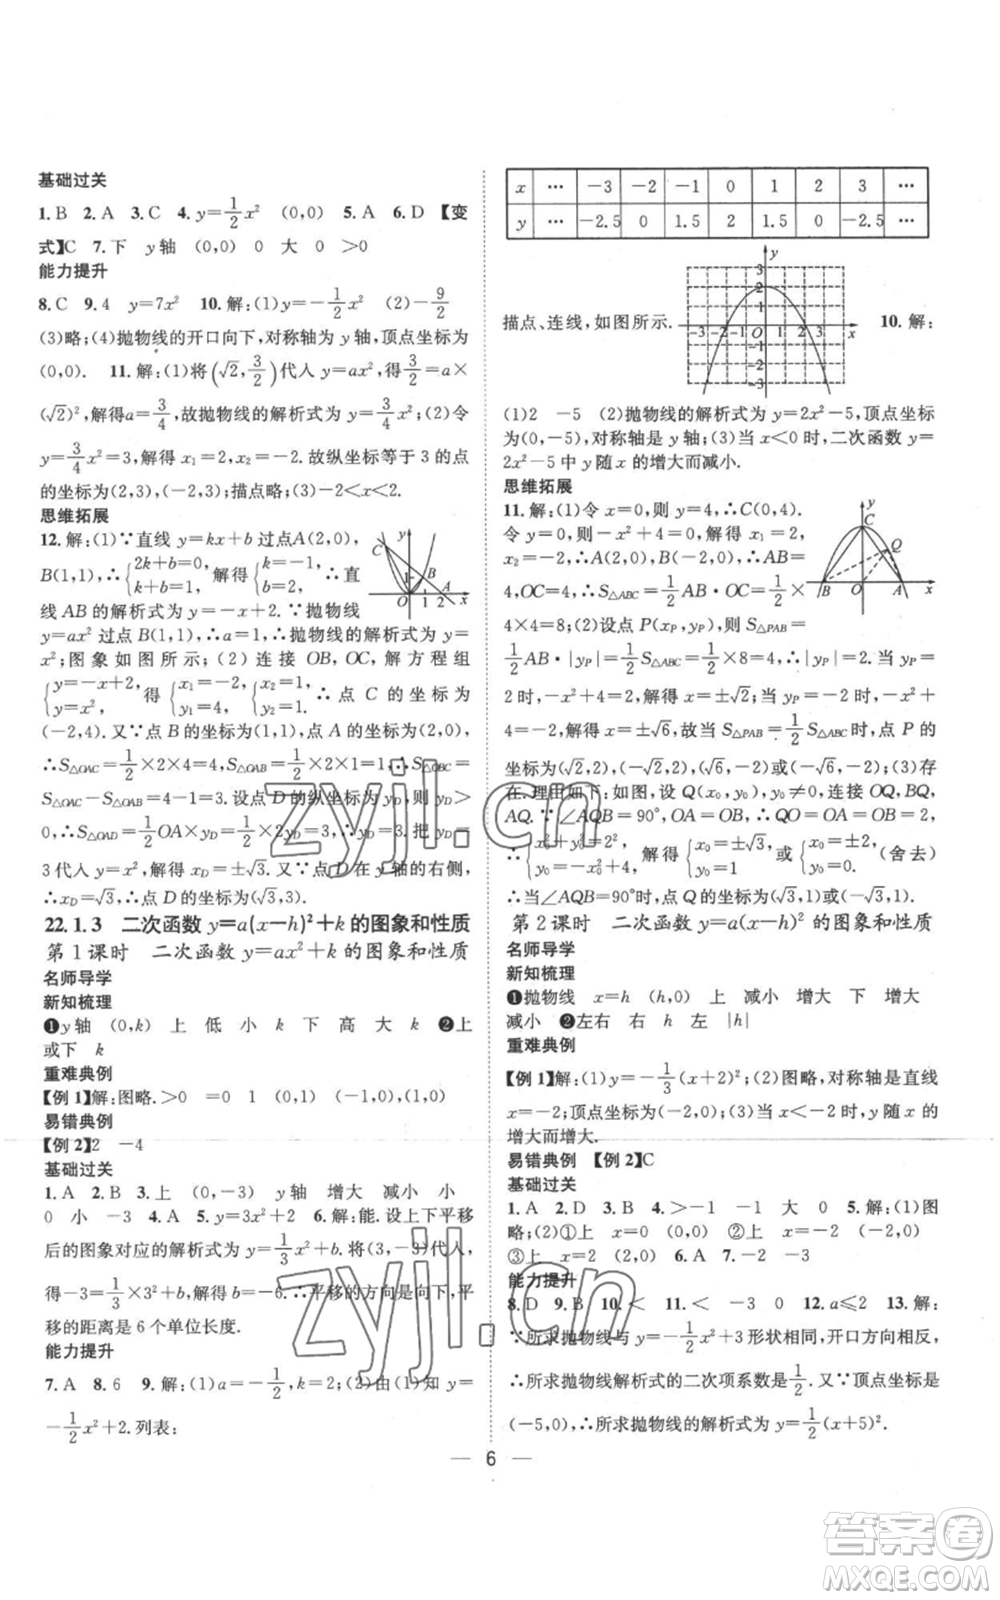 基础过关
1.B 2.A 3.C 4.y=1/2x² (0,0) 5.A 6.D 【变
式】C 7.下 y轴 (0,0) 0 大 0 >0
能力提升
8.C 9.4 y=7x² 10.解:(1)y=-1/2x² (2)-9/2
(3)略;(4)抛物线的开口向下,对称轴为y轴,顶点坐标为
(0,0). 11.解:(1)将(√2,3/2)代入y=ax²,得3/2=a×
(√2)²,解得a=3/4,故抛物线的解析式为y=3/4x²;(2)令
y=3/4x²=3,解得x₁=2,x₂=-2.故纵坐标等于3的点
的坐标为(2,3),(-2,3);描点略;(3)-2<x<2.
思维拓展
12.解:(1)∵直线y=kx+b过点A(2,0),
B(1,1),∴{2k+b=0, k+b=1, 解得{k=-1, b=2. ∴直
线AB的解析式为y=-x+2.∵抛物线
y=ax²过点B(1,1),∴a=1,∴抛物线的解析式为y=
x²;图象如图所示;(2)连接OB,OC,解方程组
{y=-x+2, y=x², 得{x₁=-2, y₁=4, {x₂=1, y₂=1. ∴点C的坐标为
(-2,4).又∵点B的坐标为(1,1),点A的坐标为(2,0),
∴S△OAC=1/2×2×4=4,S△OAB=1/2×2×1=1.∴S△OBC=
S△OAC-S△OAB=4-1=3.设点D的纵坐标为y_D,则y_D>
0,∴S△OAD=1/2OA×y_D=1/2×2×y_D=3,∴y_D=3.把y_D=
3代入y=x²,解得x_D=±√3.当点D在y轴的右侧时,
∴x_D=√3,∴点D的坐标为(√3,3).
22.1.3 二次函数y=a(x-h)²+k的图象和性质
第1课时 二次函数y=ax²+k的图象和性质
名师导学
新知梳理
❶y轴 (0,k) 上 低 小 k 下 高 大 k ❷上
或下 k
重难典例
【例1】解:图略.>0 =0 1 (0,1) (-1,0) (1,0)
易错典例
【例2】2 -4
基础过关
1.A 2.B 3.上 (0,-3) y轴 增大 减小 小
0 小 -3 4.A 5.y=3x²+2 6.解:能.设上下平移
后的图象对应的解析式为y=1/3x²+b.将(3,-3)代入,
得-3=1/3×3²+b,解得b=-6.∴平移的方向是向下,平
移的距离是6个单位长度.
能力提升
7.A 8.6 9.解:(1)a=-1/2,k=2;(2)由(1)知y=
-1/2x²+2.列表:
x … -3 -2 -1 0 1 2 3 …
y … -2.5 0 1.5 2 1.5 0 -2.5 …
描点、连线,如图所示. 10.解:
(1)2 -5 (2)抛物线的解析式为y=2x²-5,顶点坐标
为(0,-5),对称轴是y轴;(3)当x<0时,二次函数y=
2x²-5中y随x的增大而减小.
思维拓展
11.解:(1)令x=0,则y=4,∴C(0,4).
令y=0,则-x²+4=0,解得x₁=2,
x₂=-2.∴A(2,0),B(-2,0),∴AB=
4,OC=4,∴S△ABC=1/2AB·OC=1/2×
4×4=8;(2)设点P(x_P,y_P),∵S△PAB=
1/2AB·|y_P|=1/2S△ABC=1/2×8=4,∴|y_P|=2.当y_P=
2时,-x²+4=2,解得x=±√2;当y_P=-2时,-x²+
4=-2,解得x=±√6,故当S△PAB=1/2S△ABC时,点P的
坐标为(√2,2),(-√2,2),(√6,-2),(-√6,-2);(3)存
在.理由如下:如图,设Q(x₀,y₀),连接OQ,BQ,
AQ.∵∠AQB=90°,OA=OB,∴QO=OA=OB=2,
∵{x₀²+y₀²=2², y₀=-x₀²+4, 解得{x₀=±√3, y₀=1 或{x₀=±2, y₀=0 (舍去)
∴当∠AQB=90°时,点Q的坐标为(√3,1)或(-√3,1).
第2课时 二次函数y=a(x-h)²的图象和性质
名师导学
新知梳理
❶抛物线 x=h (h,0) 上 减小 增大 下 增大
减小 ❷左右 右 h 左 |h|
重难典例
【例1】解:(1)y=-1/3(x+2)²;(2)图略,对称轴是直线
x=-2;顶点坐标为(-2,0);(3)当x<-2时,y随x的
增大而增大.
易错典例 【例2】C
基础过关
1.A 2.D 3.B 4.>-1 -1 大 0 5.解:(1)图
略;(2)①上 x=0 (0,0) ②上 x=-2 (-2,0)
③上 x=2 (2,0) 6.A 7.-2 -3
能力提升
8.D 9.B 10.< 11.< -3 0 12.a≤2 13.解:
∵所求抛物线与y=-1/2x²+3形状相同,开口方向相反,
∴所求抛物线解析式的二次项系数是1/2.又∵顶点坐标是
(-5,0),∴所求抛物线的解析式为y=1/2(x+5)².
6
zyjl.cn
zyjl.cn
答案圈
MXQE.COM